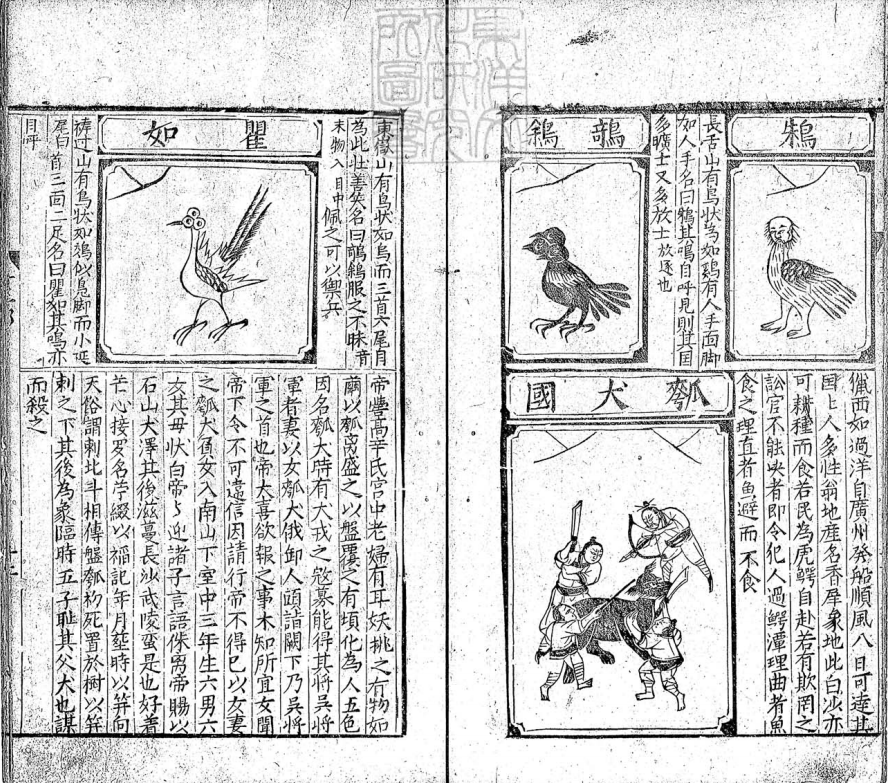 東洋文
化研究
所圖書
鴸
長舌山有鳥狀鳥如鷄有人手面脚
如人手名曰鴸其鳴自呼見則其国
多曠士又多放士 放逐也
鵸鵌
東山有鳥狀如烏而三首六尾自
為此牡善笑名曰鵸鵌服之不昩音
末物入目中佩之可以御兵
瞿如
禱过山有鳥狀如鵁似鳬脚而小延
尾白首三面二足名曰瞿如其鳴亦
自呼
西如過洋自廣州發船順風八日可達其
国上人多姓翁地産名香犀象地此白沙亦
可耕種而食若民為虎鰐自赴若有欺罔之
訟官不能决者即令犯人過鰐潭理曲者魚
食之理直者魚避而不食
瓠犬國
帝嚳髙辛氏宮中老婦有耳妖挑之有物如
繭以瓠离盛之以盤覆之有頃化為人五色
因名瓠犬時有犬戎之冦募能得其將吳將
軍者妻以女瓠犬俄卸人頭詣闕下乃吳將
軍之首也帝大喜欲報之事未知所宜女聞
帝下令不可違信因請行帝不得已以女妻
之瓠犬負女入南山下室中三年生六男六
女其母狀白帝帝迎諸子言語侏男帝賜以
石山大澤其後滋蔓長沙武陵蛮是也好着
芒心接罗名苧綴以福記年月塟時以筓向
天俗謂刺北斗相傳盤瓠初死置於樹以筓
刺之下其後為象臨時五子恥其父犬也謀
而殺之